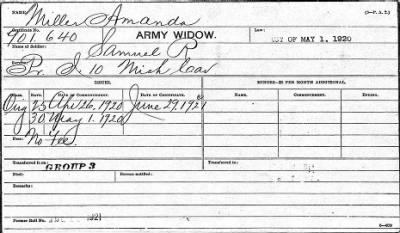 NAME: Miller Amanda (3-P. A. T.)
Certificate No. 901.640 ARMY WIDOW. Law: ACT OF MAY 1, 1920
Name of Soldier: Samuel R
Service: Pr. I. 10 Mich Cav
ISSUES. MINORS—$2 PER MONTH ADDITIONAL.
CLASS. RATE. DATE OF COMMENCEMENT. DATE OF CERTIFICATE. NAME. COMMENCEMENT. ENDING.
Orig 25 Apr 26, 1920 June 29, 1921
30 May 1. 1920
Fees: No Fee.
Transferred from GROUP 3 Transferred to
Died: Bureau notified:
Remarks:
Former Roll No. 1921 6—409